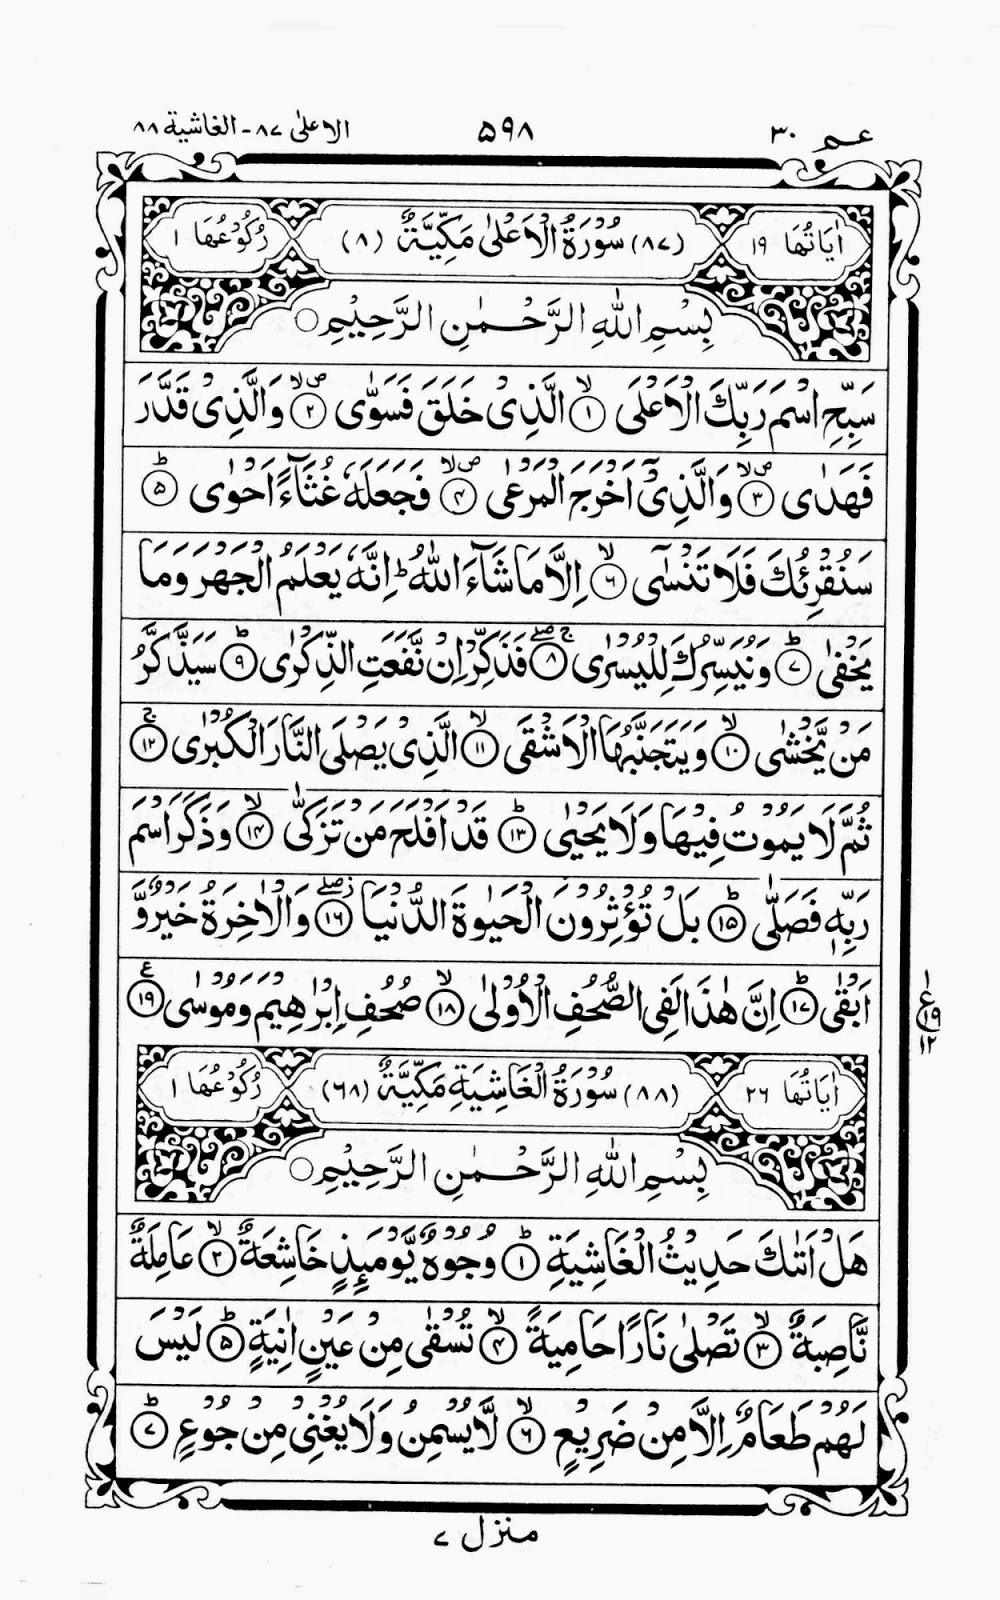 عـم ٣٠ ٥٩٨ الاعلىٰ ٨٧ - الغاشية ٨٨
اٰيَاتُهَا ١٩ (٨٧) سُوْرَةُ الْاَعْلٰى مَكِّيَّةٌ (٨) رُكُوْعُهَا ١
بِسْمِ اللهِ الرَّحْمٰنِ الرَّحِيْمِ ○
سَبِّحِ اسْمَ رَبِّكَ الْاَعْلَى ۙ﴿١﴾ الَّذِىْ خَلَقَ فَسَوّٰى ۪ۙ﴿٢﴾ وَالَّذِىْ قَدَّرَ
فَهَدٰى ۪ۙ﴿٣﴾ وَالَّذِىْۤ اَخْرَجَ الْمَرْعٰى ۪ۙ﴿٤﴾ فَجَعَلَهٗ غُثَآءً اَحْوٰى ؕ﴿٥﴾
سَنُقْرِئُكَ فَلَا تَنْسٰٓى ۙ﴿٦﴾ اِلَّا مَا شَآءَ اللهُ ؕ اِنَّهٗ يَعْلَمُ الْجَهْرَ وَمَا
يَخْفٰى ؕ﴿٧﴾ وَنُيَسِّرُكَ لِلْيُسْرٰى ۚۖ﴿٨﴾ فَذَكِّرْ اِنْ نَّفَعَتِ الذِّكْرٰى ؕ﴿٩﴾ سَيَذَّكَّرُ
مَنْ يَّخْشٰى ۙ﴿١٠﴾ وَيَتَجَنَّبُهَا الْاَشْقَى ۙ﴿١١﴾ الَّذِىْ يَصْلَى النَّارَ الْكُبْرٰى ۚ﴿١٢﴾
ثُمَّ لَا يَمُوْتُ فِيْهَا وَلَا يَحْيٰى ؕ﴿١٣﴾ قَدْ اَفْلَحَ مَنْ تَزَكّٰى ۙ﴿١٤﴾ وَذَكَرَ اسْمَ
رَبِّهٖ فَصَلّٰى ؕ﴿١٥﴾ بَلْ تُؤْثِرُوْنَ الْحَيٰوةَ الدُّنْيَا ۖز﴿١٦﴾ وَالْاٰخِرَةُ خَيْرٌ وَّ
اَبْقٰى ؕ﴿١٧﴾ اِنَّ هٰذَا لَفِى الصُّحُفِ الْاُوْلٰى ۙ﴿١٨﴾ صُحُفِ اِبْرٰهِيْمَ وَمُوْسٰى ﴿١٩﴾ ع
١ ع ١٩ ١٢
اٰيَاتُهَا ٢٦ (٨٨) سُوْرَةُ الْغَاشِيَةِ مَكِّيَّةٌ (٦٨) رُكُوْعُهَا ١
بِسْمِ اللهِ الرَّحْمٰنِ الرَّحِيْمِ ○
هَلْ اَتٰىكَ حَدِيْثُ الْغَاشِيَةِ ؕ﴿١﴾ وُجُوْهٌ يَّوْمَئِذٍ خَاشِعَةٌ ۙ﴿٢﴾ عَامِلَةٌ
نَّاصِبَةٌ ۙ﴿٣﴾ تَصْلٰى نَارًا حَامِيَةً ۙ﴿٤﴾ تُسْقٰى مِنْ عَيْنٍ اٰنِيَةٍ ؕ﴿٥﴾ لَيْسَ
لَهُمْ طَعَامٌ اِلَّا مِنْ ضَرِيْعٍ ۙ﴿٦﴾ لَّا يُسْمِنُ وَلَا يُغْنِىْ مِنْ جُوْعٍ ؕ﴿٧﴾
منزل ٧